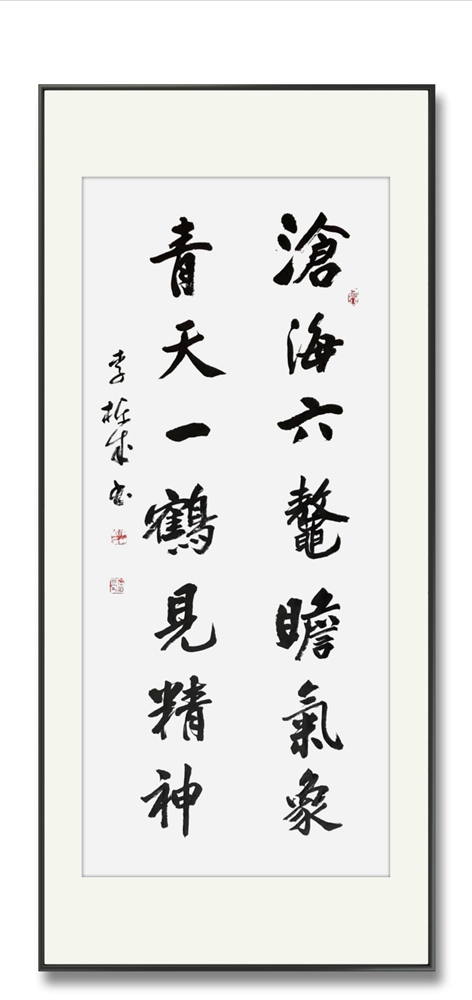 滄海六鼇瞻氣象
青天一鶴見精神
李
書